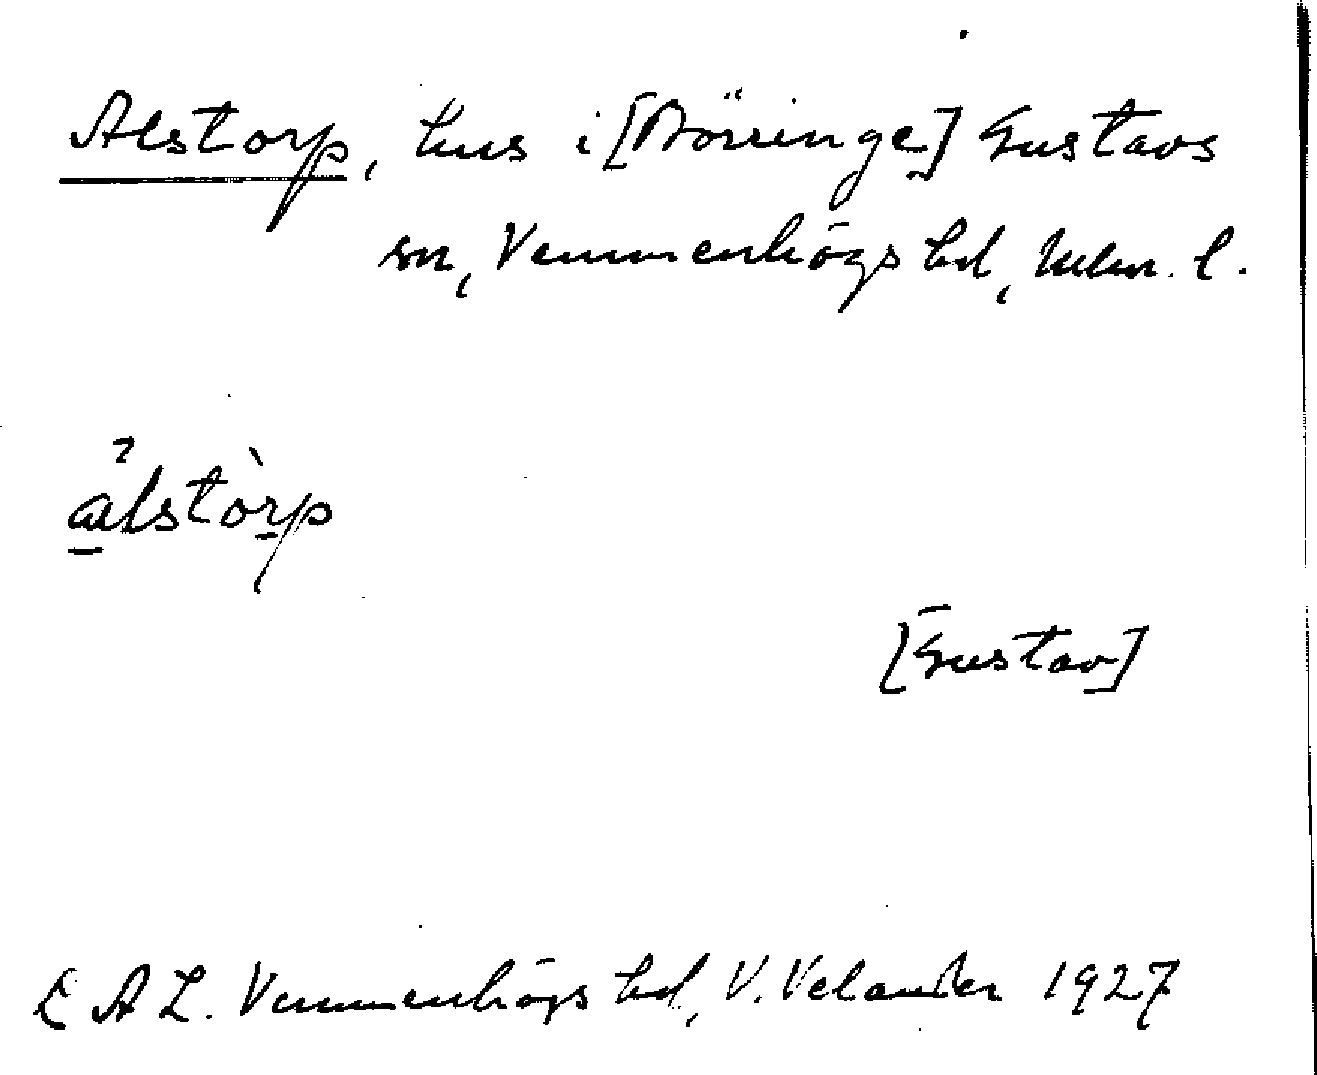 Alstorp, hus i [Börringe] Gustavs
sn, Vemmenhögs hd, Mlm. l.
alstòrp
[Gustav]
L A L. Vemmenhögs hd, V. Velander 1927